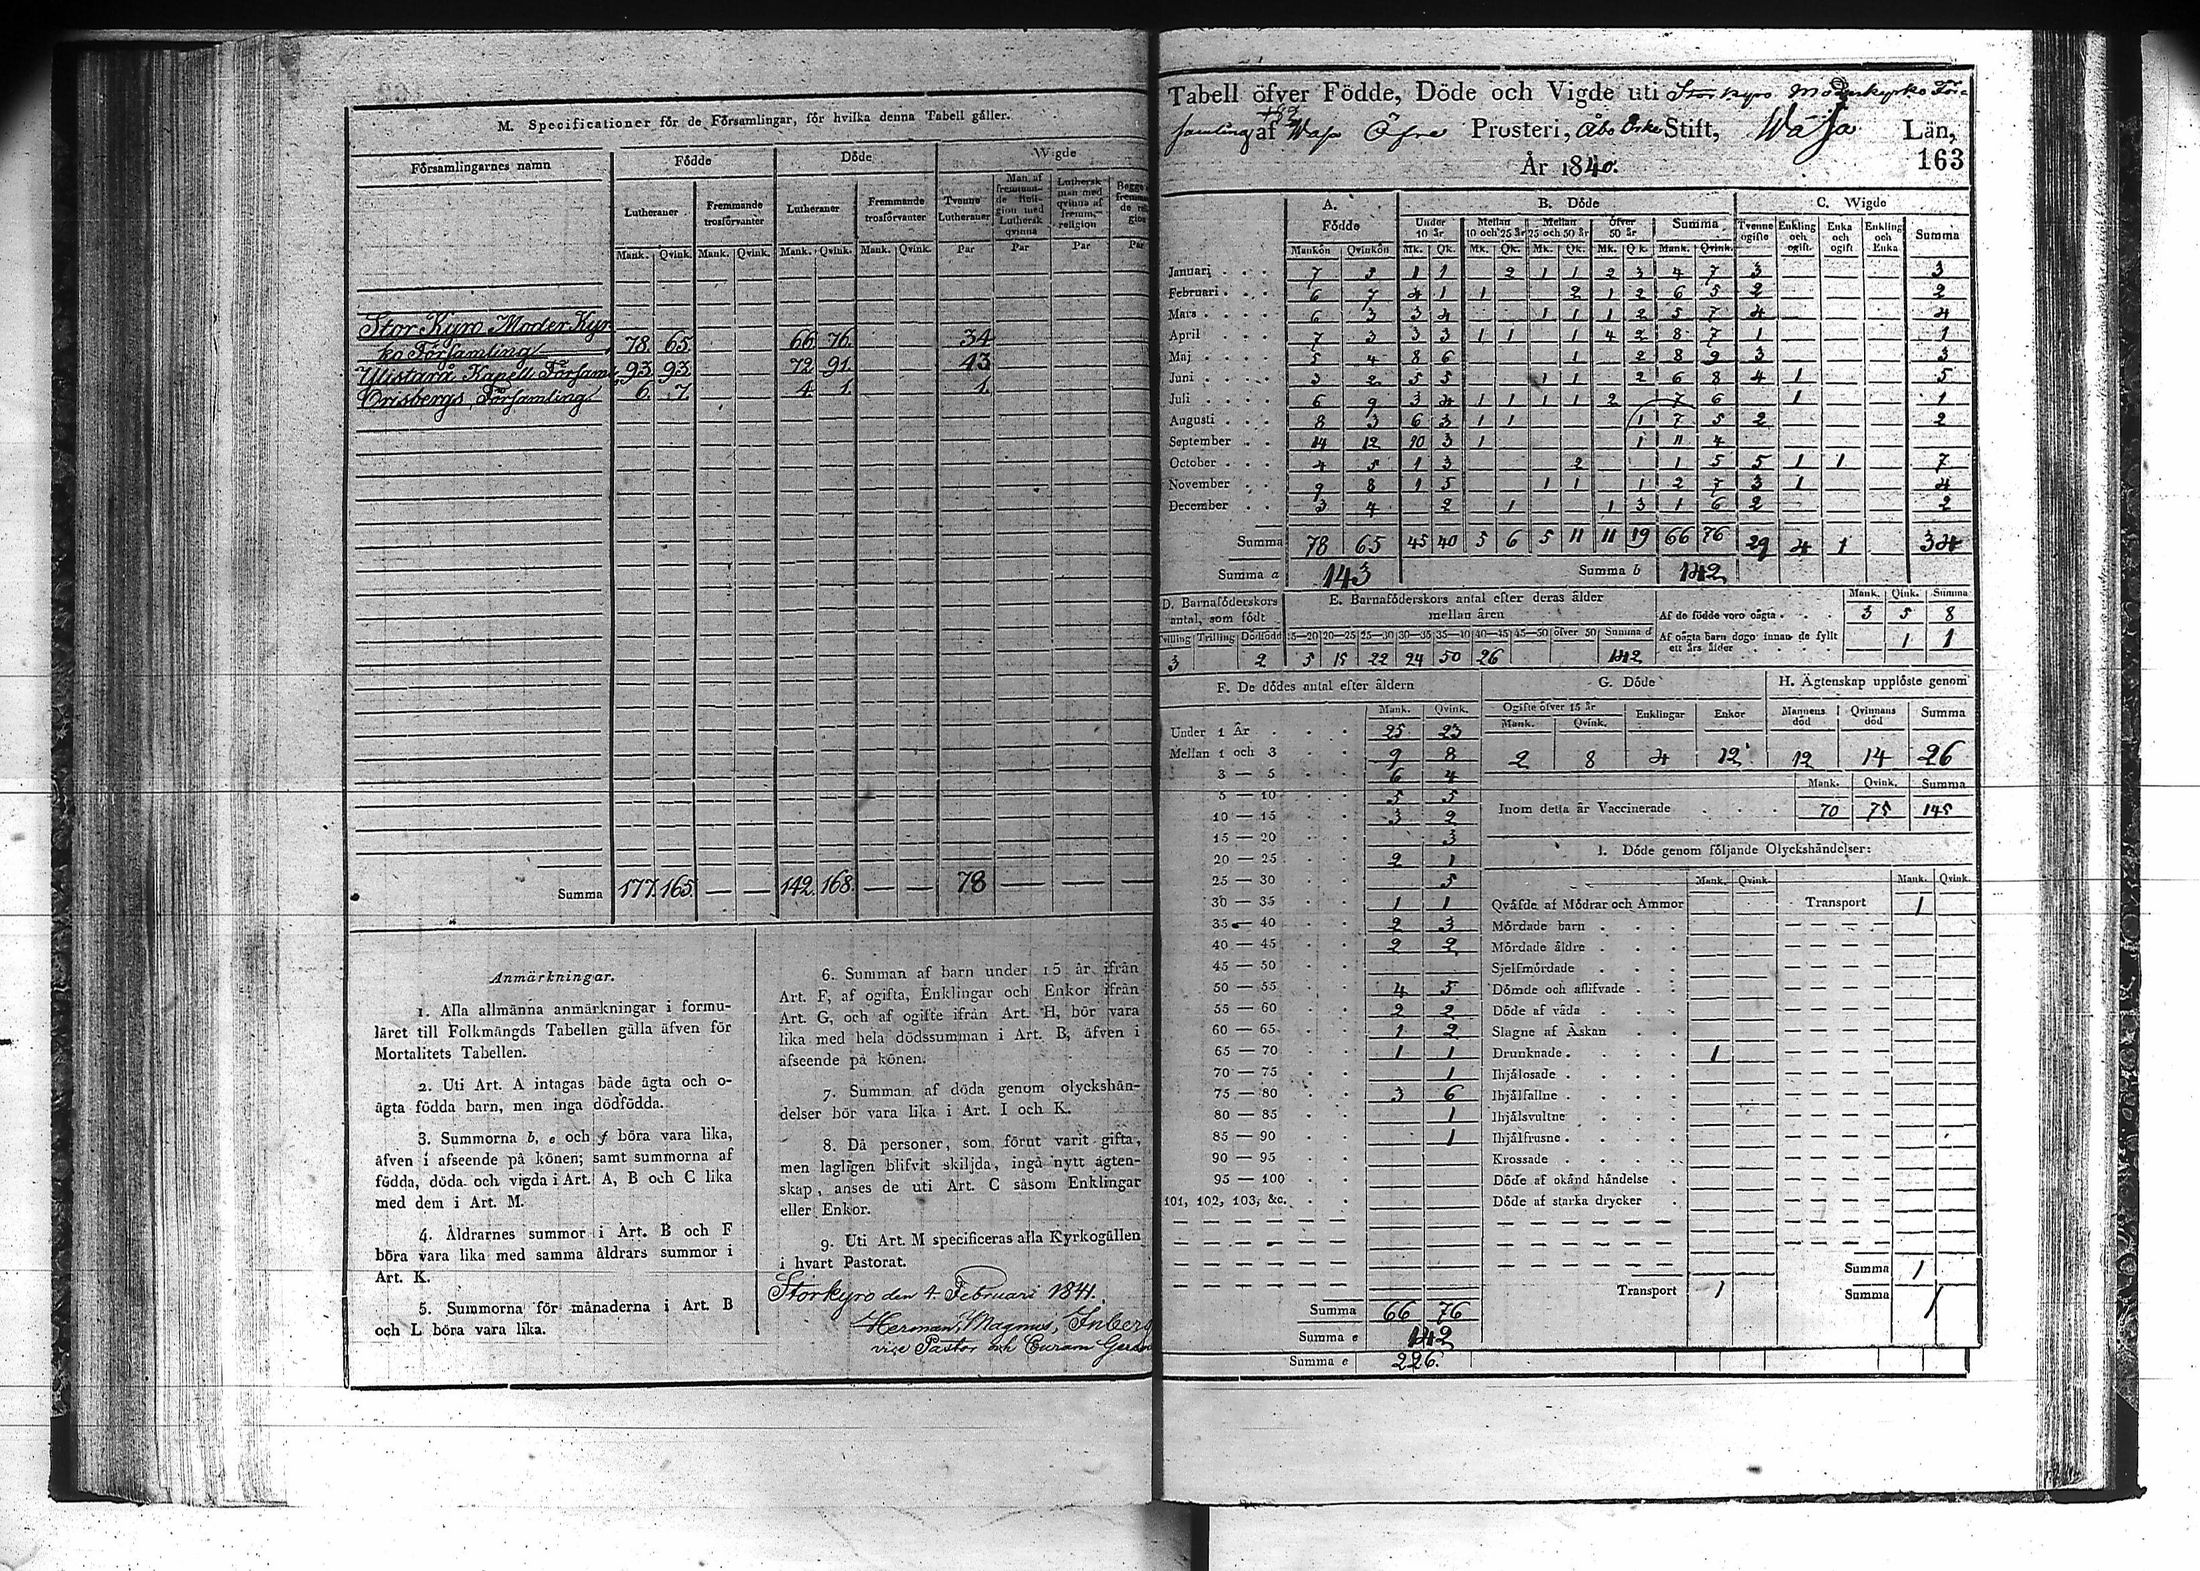 M. Specificationer för de Församlingar, för hvilka denna Tabell gäller.
Församlingarnes namn
Födde Döde Wigde
Lutheraner Fremmande trosförvanter Lutheraner Fremmande trosförvanter Tvenne Lutheraner Man af fremmande Religion med Luthersk qvinna Luthersk man med qvinna af fremm. religion
Mank. Qvink. Mank. Qvink. Mank. Qvink. Mank. Qvink. Par Par Par Par
Stor Kyro Moder Kyr
ko Församling 78 65 66 76 34
Ylistarå Kapell Församl. 93 93 72 91 43
Orisbergs Församling 6 7 4 1 1
Summa 177 165 — — 142 168 — — 78 — — —
Anmärkningar.
1. Alla allmänna anmärkningar i formu-
läret till Folkmängds Tabellen gälla äfven för
Mortalitets Tabellen.
2. Uti Art. A intagas både ägta och o-
ägta födda barn, men inga dödfödda.
3. Summorna b, e och f böra vara lika,
äfven i afseende på könen; samt summorna af
födda, döda och vigda i Art. A, B och C lika
med dem i Art. M.
4. Åldrarnes summor i Art. B och F
böra vara lika med samma åldrars summor i
Art. K.
5. Summorna för månaderna i Art. B
och L böra vara lika.
6. Summan af barn under 15 år ifrån
Art. F, af ogifta, Enklingar och Enkor ifrån
Art. G, och af ogifte ifrån Art. H, bör vara
lika med hela dödssumman i Art. B, äfven i
afseende på könen.
7. Summan af döda genom olyckshän-
delser bör vara lika i Art. I och K.
8. Då personer, som förut varit gifta,
men lagligen blifvit skiljda, ingå nytt ägten-
skap, anses de uti Art. C såsom Enklingar
eller Enkor.
9. Uti Art. M specificeras alla Kyrkogällen
i hvart Pastorat.
Storkyro den 4 Februari 1841.
Herman Magnus Inberg
vice Pastor och Curam Gerens
Tabell öfver Födde, Döde och Vigde uti Storkyro Moderkyrko För-
samling af Wasa Öfre Prosteri, Åbo Erke Stift, Wasa Län,
År 1840. 163
A. Födde B. Döde C. Wigde
Under 10 år Mellan 10 och 25 år Mellan 25 och 50 år Öfver 50 år Summa Tvenne ogifte Enkling och ogift Enka och ogift Enkling och Enka Summa
Mankön Qvinkön Mk. Qk. Mk. Qk. Mk. Qk. Mk. Qk. Mank. Qvink.
Januari 7 5 1 1 2 1 1 2 3 4 7 3 3
Februari 6 7 4 1 1 2 1 2 6 5 2 2
Mars 6 3 3 4 1 1 1 2 5 7 4 4
April 7 3 3 3 1 1 1 4 2 8 7 1 1
Maj 5 4 8 6 1 2 8 9 3 3
Juni 3 2 5 5 1 1 2 6 8 4 1 5
Juli 6 9 3 4 1 1 1 1 2 7 6 1 1
Augusti 8 3 6 3 1 1 1 7 5 2 2
September 14 12 10 3 1 1 11 4
October 4 5 1 3 2 1 5 5 1 1 7
November 9 8 1 5 1 1 1 2 7 3 1 4
December 3 4 2 1 1 3 1 6 2 2
Summa 78 65 45 40 5 6 5 11 11 19 66 76 29 4 1 34
Summa a 143 Summa b 142
D. Barnaföderskors antal, som födt
Tvilling Trilling Dödfödd
3 2
E. Barnaföderskors antal efter deras ålder mellan åren
15—20 20—25 25—30 30—35 35—40 40—45 45—50 öfver 50 Summa d
5 15 22 24 50 26 142
Mank. Qink. Summa
Af de födde voro oägta 3 5 8
Af oägta barn dogo innan de fyllt ett års ålder 1 1
F. De dödes antal efter åldern
Mank. Qvink.
Under 1 År 25 23
Mellan 1 och 3 9 8
3 — 5 6 4
5 — 10 5 5
10 — 15 3 2
15 — 20 3
20 — 25 2 1
25 — 30 5
30 — 35 1 1
35 — 40 2 3
40 — 45 2 2
45 — 50
50 — 55 4 5
55 — 60 2 2
60 — 65 1 2
65 — 70 1 1
70 — 75 1
75 — 80 3 6
80 — 85 1
85 — 90 1
90 — 95
95 — 100
101, 102, 103, &c.
Summa 66 76
Summa e 142
Summa e 226
G. Döde
Ogifte öfver 15 år Enklingar Enkor
Mank. Qvink.
2 8 4 12
H. Ägtenskap upplöste genom
Mannens död Qvinnans död Summa
12 14 26
Mank. Qvink. Summa
Inom detta år Vaccinerade 70 75 145
I. Döde genom följande Olyckshändelser:
Mank. Qvink. Mank. Qvink.
Qväfde af Mödrar och Ammor Transport 1
Mördade barn
Mördade äldre
Sjelfmördade
Dömde och aflifvade
Döde af våda
Slagne af Åskan
Drunknade 1
Ihjälosade
Ihjälfallne
Ihjälsvultne
Ihjälfrusne
Krossade
Döde af okänd händelse
Döde af starka drycker
Summa 1
Transport 1 Summa 1